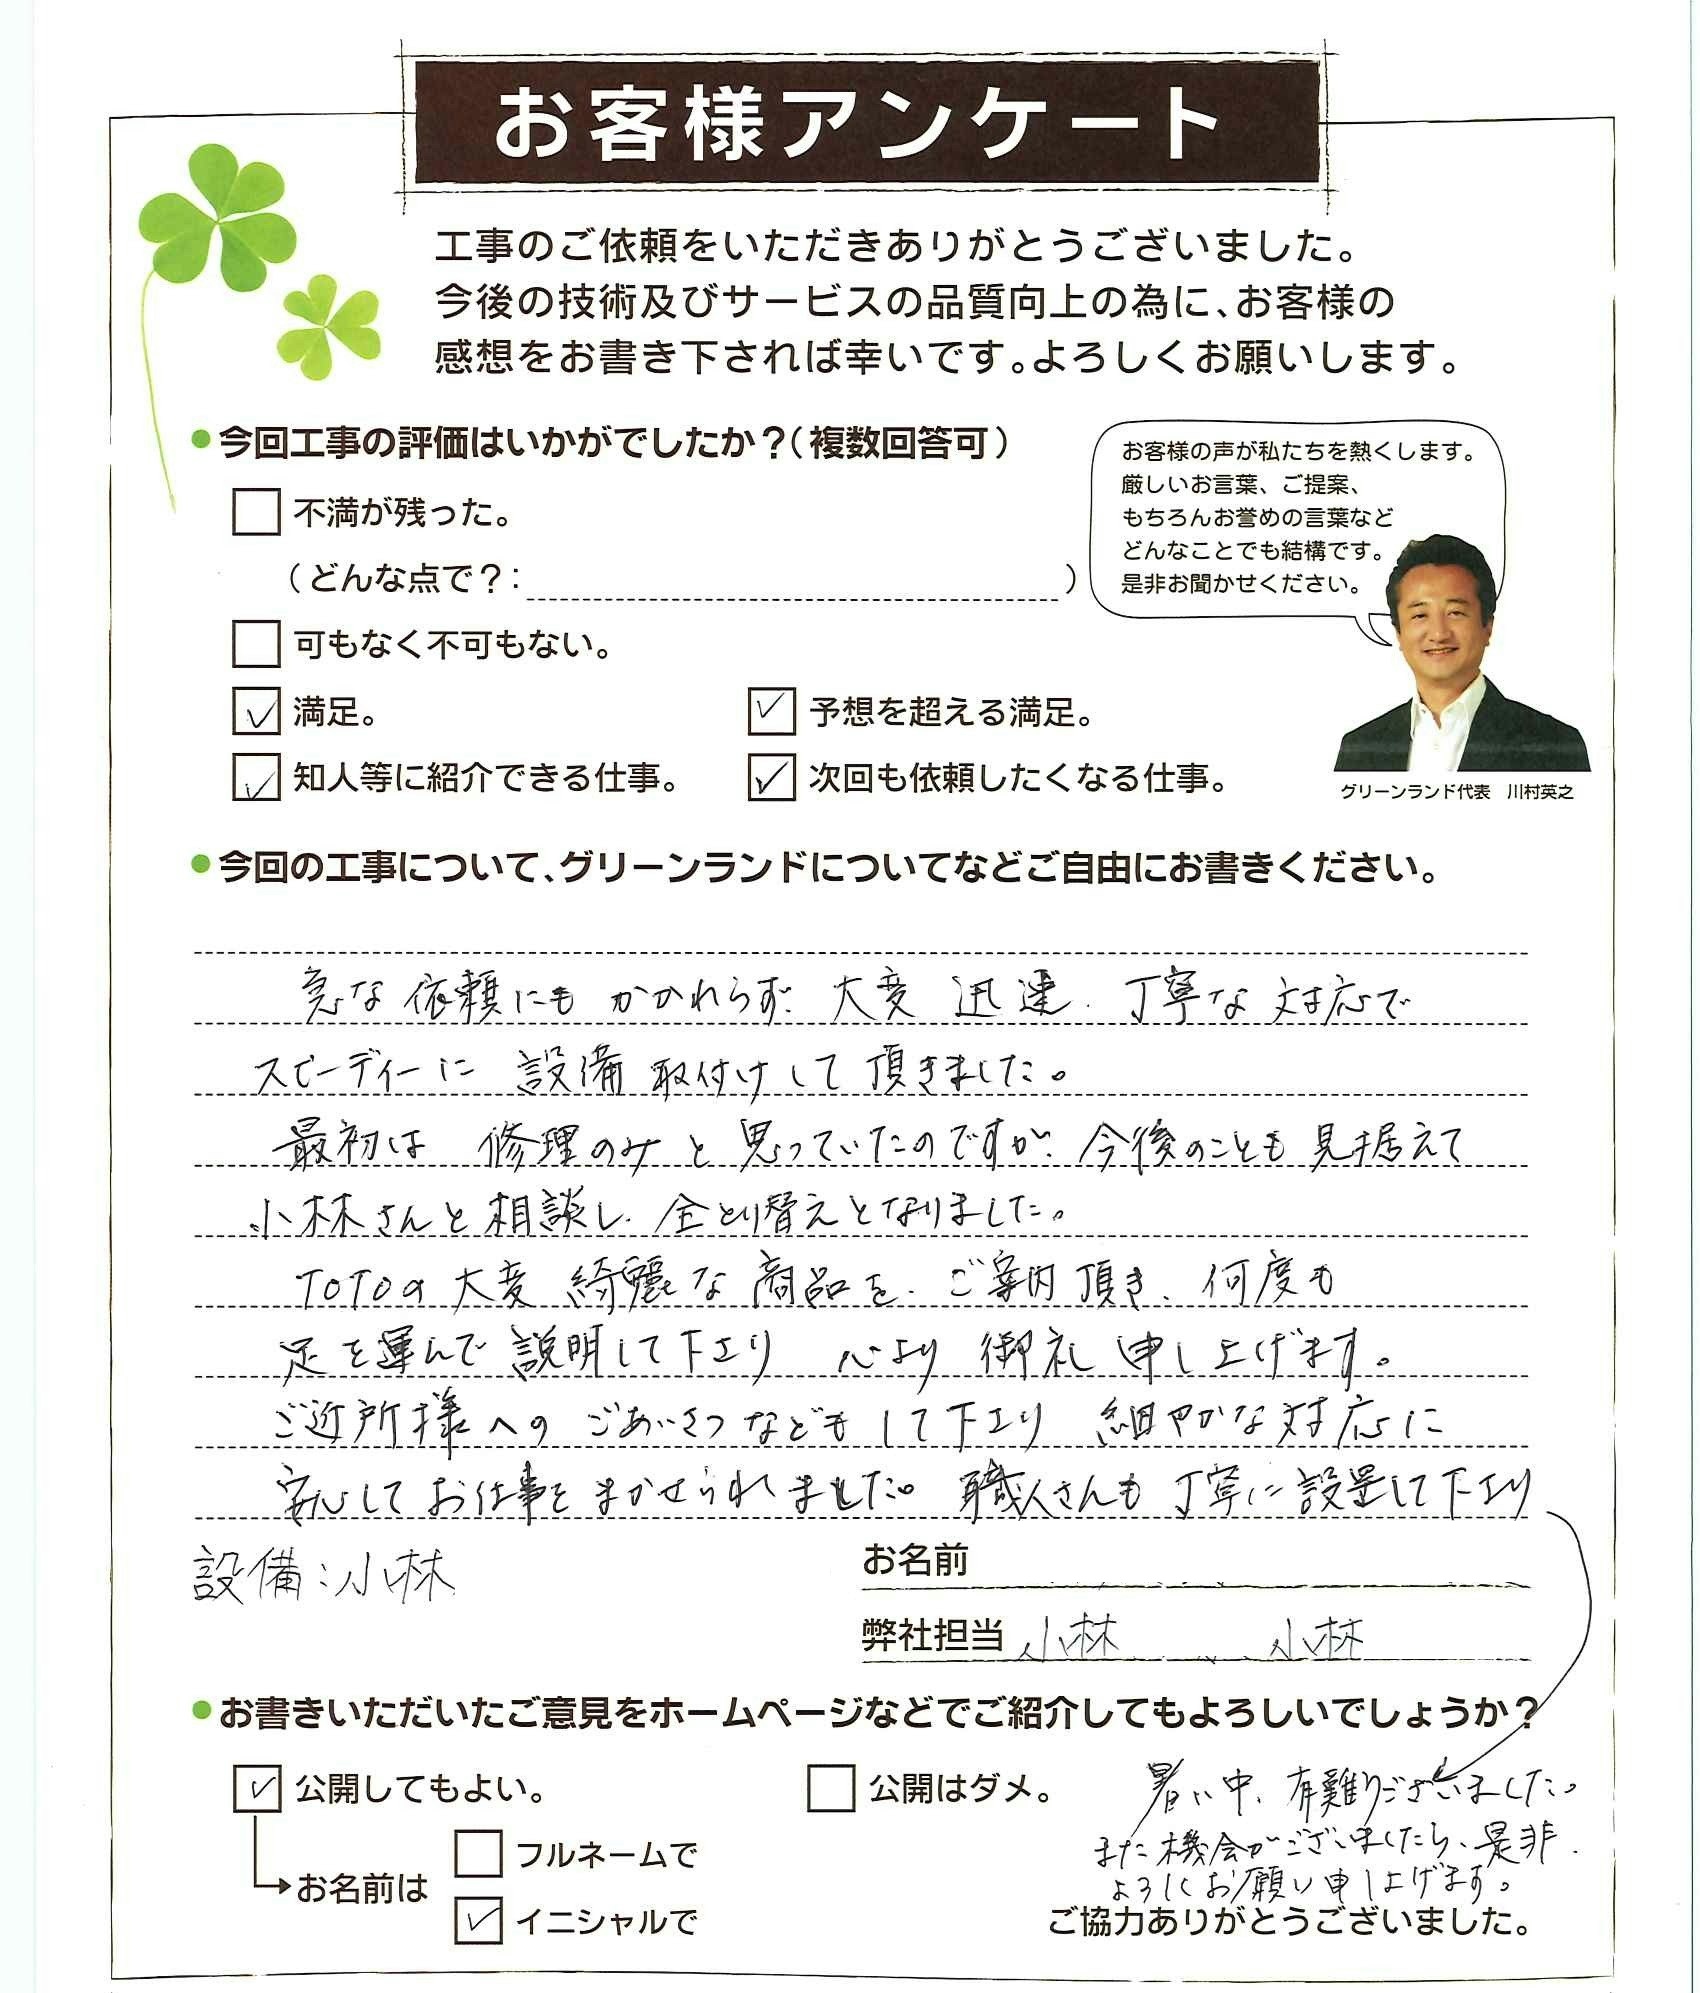 お客様アンケート
工事のご依頼をいただきありがとうございました。
今後の技術及びサービスの品質向上の為に、お客様の
感想をお書き下されば幸いです。よろしくお願いします。
●今回工事の評価はいかがでしたか?(複数回答可)
不満が残った。
(どんな点で?: )
可もなく不可もない。
✓ 満足。
✓ 予想を超える満足。
✓ 知人等に紹介できる仕事。
✓ 次回も依頼したくなる仕事。
お客様の声が私たちを熱くします。
厳しいお言葉、ご提案、
もちろんお誉めの言葉など
どんなことでも結構です。
是非お聞かせください。
グリーンランド代表 川村英之
●今回の工事について、グリーンランドについてなどご自由にお書きください。
急な依頼にもかかわらず、大変迅速、丁寧な対応で
スピーディーに設備取付けして頂きました。
最初は修理のみと思っていたのですが、今後のことも見据えて
小林さんと相談し、全とり替えとなりました。
TOTOの大変綺麗な商品を、ご案内頂き、何度も
足を運んで説明して下さり 心より御礼申し上げます。
ご近所様へのごあいさつなどもして下さり 細やかな対応に
安心してお仕事をまかせられました。職人さんも丁寧に設置して下さり
設備:小林
お名前
弊社担当 小林 小林
●お書きいただいたご意見をホームページなどでご紹介してもよろしいでしょうか?
✓ 公開してもよい。
公開はダメ。
お名前は
フルネームで
✓ イニシャルで
暑い中、有難うございました。
また機会がございましたら、是非、
よろしくお願い申し上げます。
ご協力ありがとうございました。